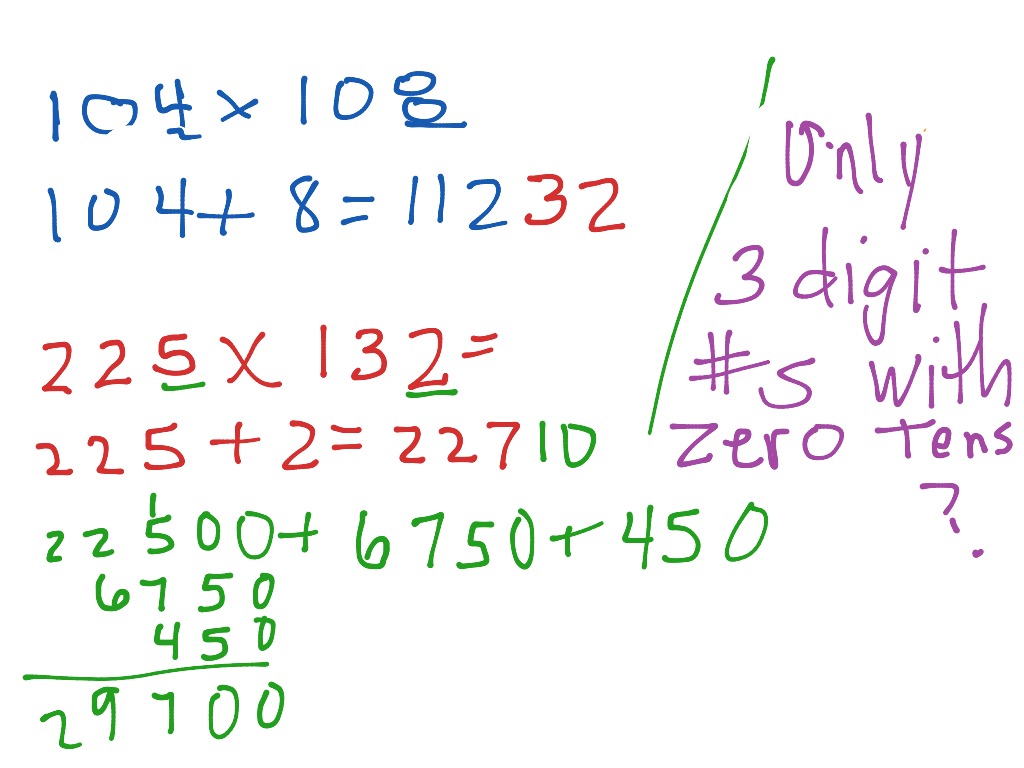 104 × 108
104 + 8 = 11232
225 × 132 =
225 + 2 = 22710
1
22500 + 6750 + 450
6750
450
29700
Only
3 digit
#s with
zero tens
?